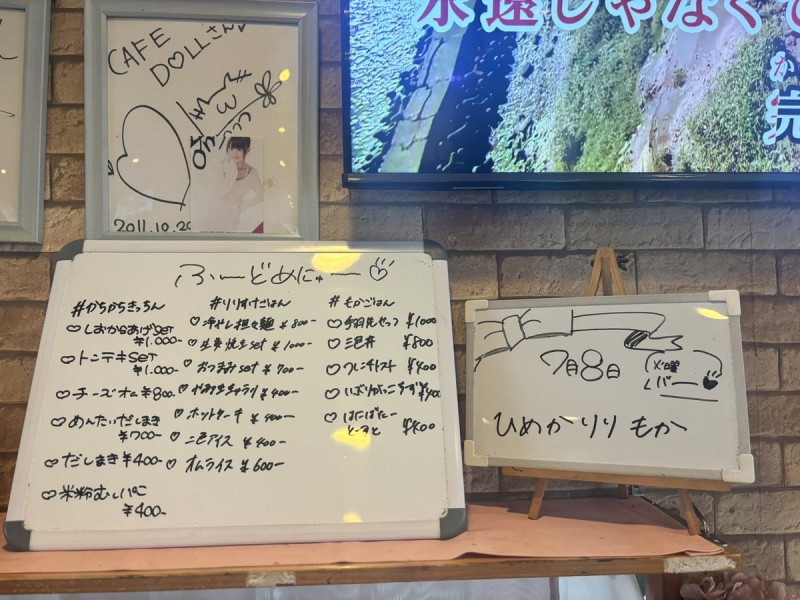 CAFE
DOLLさん♡
2011.10.29
永遠じゃなくて
か
完
ふーどめにゅー♡
#かちかちきっちん
♡しおからあげset
¥1.000-
♡トンテキset
¥1.000-
♡チーズオム¥800-
♡めんたいだしまき
¥700-
♡だしまき¥400-
♡米粉むしパン
¥400-
#りりすけごはん
♡冷やし担々麺 ¥800-
♡生姜焼きset ¥1000-
♡おつまみset ¥700-
¥400-
♡ホットケーキ ¥400-
♡二色アイス ¥400-
♡オムライス ¥600-
#もかごはん
♡手羽先せっつ ¥1000
♡三色丼 ¥800
♡つにチトースト ¥400
♡いぶりがっこちーず ¥400
♡はにばたー
とーすと ¥400
7月8日
火曜
バー♥
ひめか りり もか